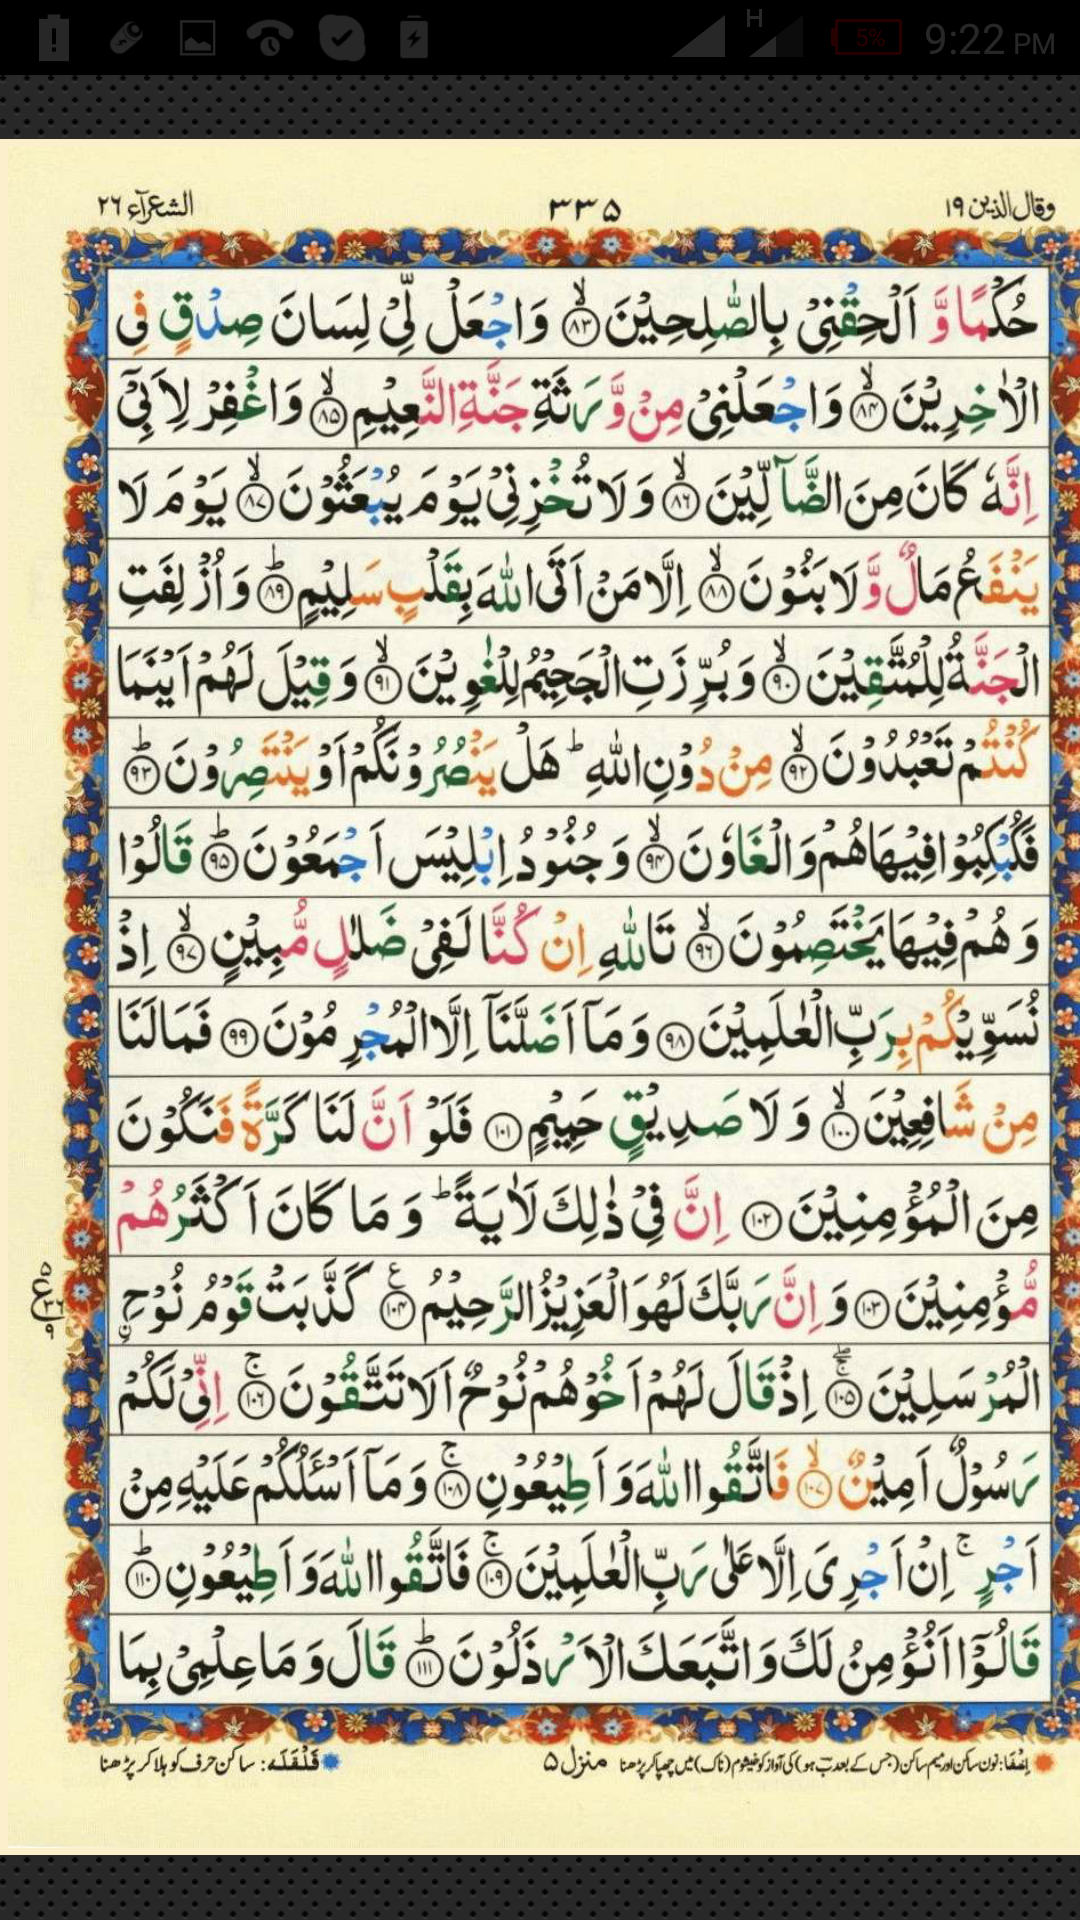 H 5% 9:22 PM
وقال الذین ۱۹ ۳۳۵ الشعرآء ۲۶
حُكْمًا وَّ اَلْحِقْنِیْ بِالصّٰلِحِیْنَ ﴿۸۳﴾ۙ وَ اجْعَلْ لِّیْ لِسَانَ صِدْقٍ فِی
الْاٰخِرِیْنَ ﴿۸۴﴾ۙ وَ اجْعَلْنِیْ مِنْ وَّرَثَةِ جَنَّةِ النَّعِیْمِ ﴿۸۵﴾ۙ وَ اغْفِرْ لِاَبِیْۤ
اِنَّهٗ كَانَ مِنَ الضَّآلِّیْنَ ﴿۸۶﴾ۙ وَ لَا تُخْزِنِیْ یَوْمَ یُبْعَثُوْنَ ﴿۸۷﴾ۙ یَوْمَ لَا
یَنْفَعُ مَالٌ وَّ لَا بَنُوْنَ ﴿۸۸﴾ۙ اِلَّا مَنْ اَتَی اللّٰهَ بِقَلْبٍ سَلِیْمٍ ﴿۸۹﴾ؕ وَ اُزْلِفَتِ
الْجَنَّةُ لِلْمُتَّقِیْنَ ﴿۹۰﴾ۙ وَ بُرِّزَتِ الْجَحِیْمُ لِلْغٰوِیْنَ ﴿۹۱﴾ۙ وَ قِیْلَ لَهُمْ اَیْنَمَا
كُنْتُمْ تَعْبُدُوْنَ ﴿۹۲﴾ۙ مِنْ دُوْنِ اللّٰهِ ؕ هَلْ یَنْصُرُوْنَكُمْ اَوْ یَنْتَصِرُوْنَ ﴿۹۳﴾ؕ
فَكُبْكِبُوْا فِیْهَا هُمْ وَ الْغَاوٗنَ ﴿۹۴﴾ۙ وَ جُنُوْدُ اِبْلِیْسَ اَجْمَعُوْنَ ﴿۹۵﴾ؕ قَالُوْا
وَ هُمْ فِیْهَا یَخْتَصِمُوْنَ ﴿۹۶﴾ۙ تَاللّٰهِ اِنْ كُنَّا لَفِیْ ضَلٰلٍ مُّبِیْنٍ ﴿۹۷﴾ۙ اِذْ
نُسَوِّیْكُمْ بِرَبِّ الْعٰلَمِیْنَ ﴿۹۸﴾ وَ مَاۤ اَضَلَّنَاۤ اِلَّا الْمُجْرِمُوْنَ ﴿۹۹﴾ فَمَا لَنَا
مِنْ شَافِعِیْنَ ﴿۱۰۰﴾ۙ وَ لَا صَدِیْقٍ حَمِیْمٍ ﴿۱۰۱﴾ فَلَوْ اَنَّ لَنَا كَرَّةً فَنَكُوْنَ
مِنَ الْمُؤْمِنِیْنَ ﴿۱۰۲﴾ اِنَّ فِیْ ذٰلِكَ لَاٰیَةً ؕ وَ مَا كَانَ اَكْثَرُهُمْ
مُّؤْمِنِیْنَ ﴿۱۰۳﴾ وَ اِنَّ رَبَّكَ لَهُوَ الْعَزِیْزُ الرَّحِیْمُ ﴿۱۰۴﴾ع كَذَّبَتْ قَوْمُ نُوْحِ ۣ
۵ ع ۳۶ ۹
الْمُرْسَلِیْنَ ﴿۱۰۵﴾ۚۖ اِذْ قَالَ لَهُمْ اَخُوْهُمْ نُوْحٌ اَلَا تَتَّقُوْنَ ﴿۱۰۶﴾ۚ اِنِّیْ لَكُمْ
رَسُوْلٌ اَمِیْنٌ ﴿۱۰۷﴾ۙ فَاتَّقُوا اللّٰهَ وَ اَطِیْعُوْنِ ﴿۱۰۸﴾ۚ وَ مَاۤ اَسْـَٔلُكُمْ عَلَیْهِ مِنْ
اَجْرٍ ۚ اِنْ اَجْرِیَ اِلَّا عَلٰی رَبِّ الْعٰلَمِیْنَ ﴿۱۰۹﴾ۚ فَاتَّقُوا اللّٰهَ وَ اَطِیْعُوْنِ ﴿۱۱۰﴾ؕ
قَالُوْۤا اَنُؤْمِنُ لَكَ وَ اتَّبَعَكَ الْاَرْذَلُوْنَ ﴿۱۱۱﴾ؕ قَالَ وَ مَا عِلْمِیْ بِمَا
اِخفَا: نون ساکن اور میم ساکن (جس کے بعد ب ہو) کی آواز کو خیشوم (ناک) میں چھپا کر پڑھنا منزل ۵ قَلْقَلَه: ساکن حرف کو ہلا کر پڑھنا